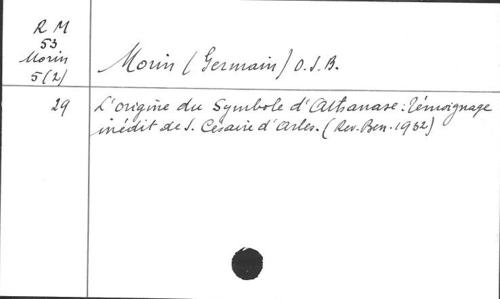 R M
53
Morin
5(2)
Morin (Germain) O.S.B.
29
L'origine du Symbole d'Athanase: témoignage
inédit de S. Césaire d'Arles. (Rev. Ben. 1932)